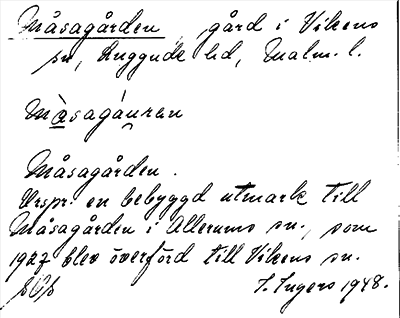 Måsagården, gård i Vikens
sn, Luggude hd, Malm. l.
Måsagårdен
Måsagården.
Urspr. en bebyggd utmark till
Måsagården i Allerums sn., som
1927 blev överförd till Vikens sn.
I. Ingers 1948.